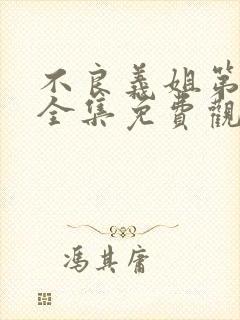 不良義姐第
全集免費觀
馮其庸